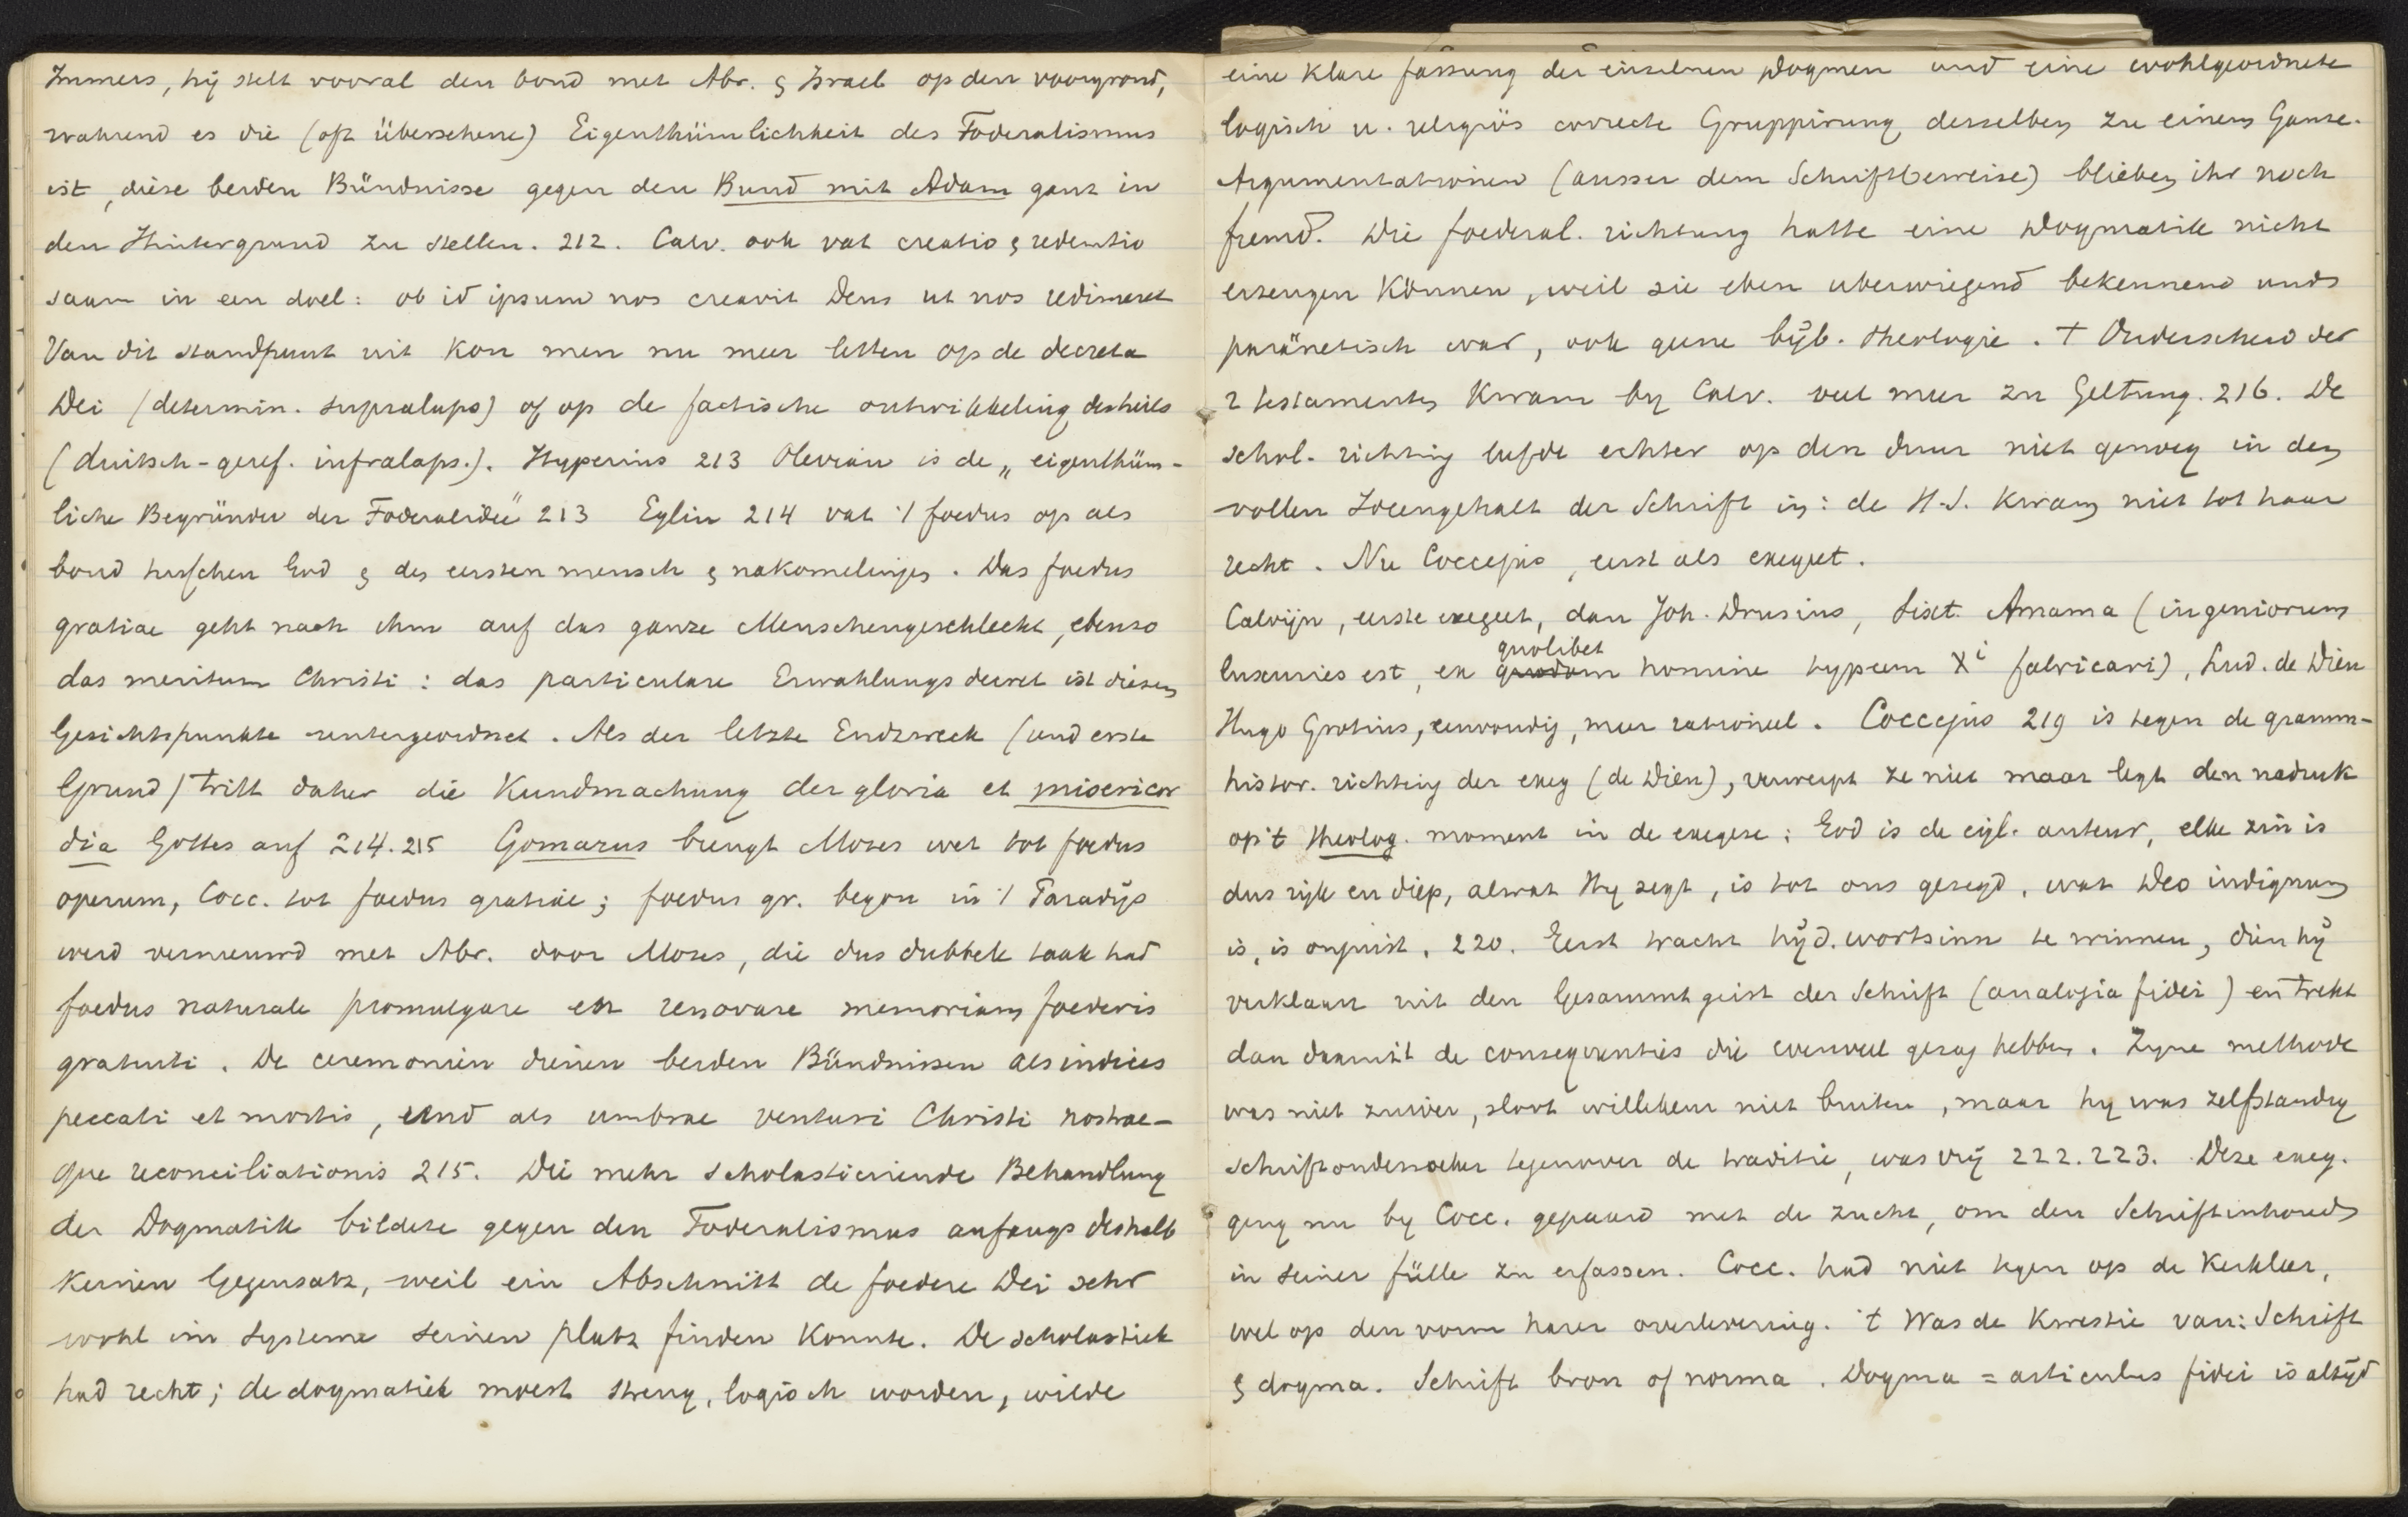 Immers, hij stelt vooral den bond met Abr. & Israel op den voorgrond,
wahrend es die (oft übersehene) Eigenthümlichkeit des Föderalismus
ist, diese beiden Bündnisse gegen den Bund mit Adam ganz in
den Hintergrund zu stellen. 212. Calv. ook vat creatio & redemtio
saam in een doel: ob id ipsum nos creavit Deus ut nos redimeret
Van dit standpunt uit kon men nu meer letten op de decreta
Dei (determin. supralaps) of op de factische ontwikkeling des heils
(duitsch-geref. infralaps.). Hyperius 213 Olevian is de „eigenthüm-
liche Begründer der Föderalidee" 213 Eglin 214 vat 't foedus op als
bond tusschen God & des eersten mensch & nakomelinges. Das foedus
gratiae geht nach ihm auf das ganze Menschengeschlecht, ebenso
das meritum Christi: das particulare Erwahlungsdecret ist diesem
Gesichtspunkte untergeordnet. Als der letzte Endzweck (und erste
Grund) tritt daher die Kundmachung der gloria et misericor
dia Gottes auf 214.215 Gomarus brengt Mozes wet tot foedus
operum, Cocc. tot foedus gratiae; foedus gr. begon in 't Paradijs
werd vernieuwd met Abr. door Mozes, die dus dubbele taak had
foedus naturale promulgare en renovare memoriam foederis
gratuiti. De ceremoniën dienen beiden Bündnissen als indices
peccati et mortis, und als umbrae venturi Christi nostrae-
que reconciliationis 215. Die mehr scholasticirende Behandlung
der Dogmatik bildete gegen den Föderalismus anfangs deshalb
keinen Gegensatz, weil ein Abschnitt de foedere Dei sehr
wohl im Systeme seinen platz finden konnte. De scholastiek
had recht; de dogmatiek moest streng, logisch worden, wilde
eine klare fassung der einzelnen Dogmen und eine wohlgeordnete
logisch u. religiös correcte Gruppirung derselben zu einem Ganze.
Argumentationen (ausser dem Schriftbeweise) blieben ihr noch
fremd. Die foederal. richtung hatte eine Dogmatik nicht
erzeugen können, weil sie eben uberwiegend bekennend und
paränetisch war, ook geene bijb. theologie. † Onderscheid der
2 testamenten kwam by Calv. veel meer zu Geltung. 216. De
schol. richting leefde echter op den duur niet genoeg in den
vollen Ideengehalt der Schrift in: de H.S. kwam niet tot haar
recht. Nu Coccejus, eerst als exegeet.
Calvijn, eerste exegeet, dan Joh. Drusius, Sixt. Amama (ingeniorum
luxuries est, ex quodam quolibet homine typum Xi fabricari), Lud. de Dieu
Hugo Grotius, eenvoudig, meer rationeel. Coccejus 219 is tegen de gramm-
histor. richting der exeg (de Dieu), verwerpt ze niet maar legt den nadruk
op 't theolog. moment in de exegese: God is de eigl. auteur, elke zin is
dus rijk en diep, alwat Hy zegt, is tot ons gezegd, wat Deo indignum
is, is onjuist. 220. Eerst tracht hij d. wortsinn te winnen, dien hij
verklaart uit den Gesammtgeist der Schrift (analogia fidei) en trekt
dan daaruit de consequenties die evenveel gezag hebben. Zyne methode
was niet zuiver, sloot willekeur niet buiten, maar hy was zelfstandig
schriftonderzoeker tegenover de traditie, was vrij 222.223. Deze exeg.
ging nu by Cocc. gepaard met de zucht, om den Schriftinhoud
in seiner fülle zu erfassen. Cocc. had niet tegen op de Kerkleer,
wel op den vorm harer overlevering. 't Was de kwestie van: Schrift
& dogma. Schrift bron of norma. Dogma = articulus fidei is altijd